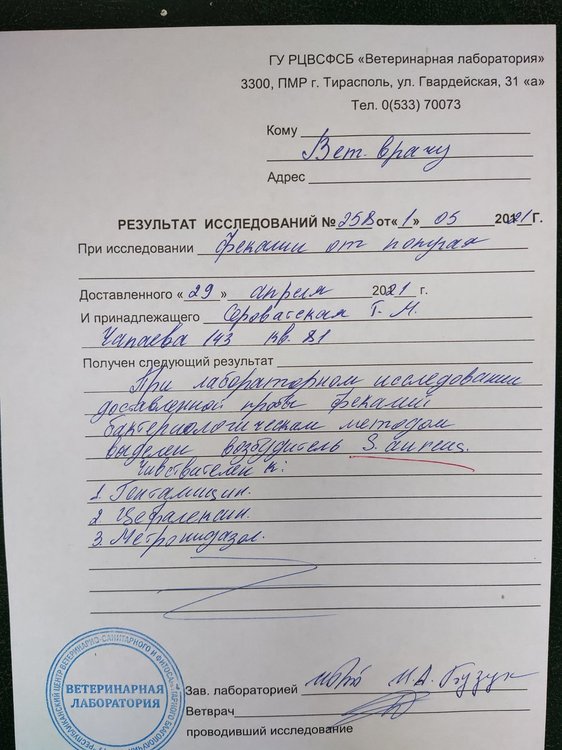 ГУ РЦВСФСБ «Ветеринарная лаборатория»
3300, ПМР г. Тирасполь, ул. Гвардейская, 31 «а»
Тел. 0(533) 70073
Кому
Вет. врачу
Адрес
РЕЗУЛЬТАТ ИССЛЕДОВАНИЙ № 258 от «1» 05 2021 Г.
При исследовании фекалии от попугая
Доставленного « 29 » апреля 2021 г.
И принадлежащего Т. М.
Чапаева 143 кв. 81
Получен следующий результат
При лабораторном исследовании
доставленной фекалий
бактериологическим методом
выделен возбудитель S. aureus.
Чувствителен к:
1. Гентамицин.
2. Цефалексин.
3. Метронидазол.
ВЕТЕРИНАРНАЯ
ЛАБОРАТОРИЯ
Зав. лабораторией М.А.
Ветврач
проводивший исследование